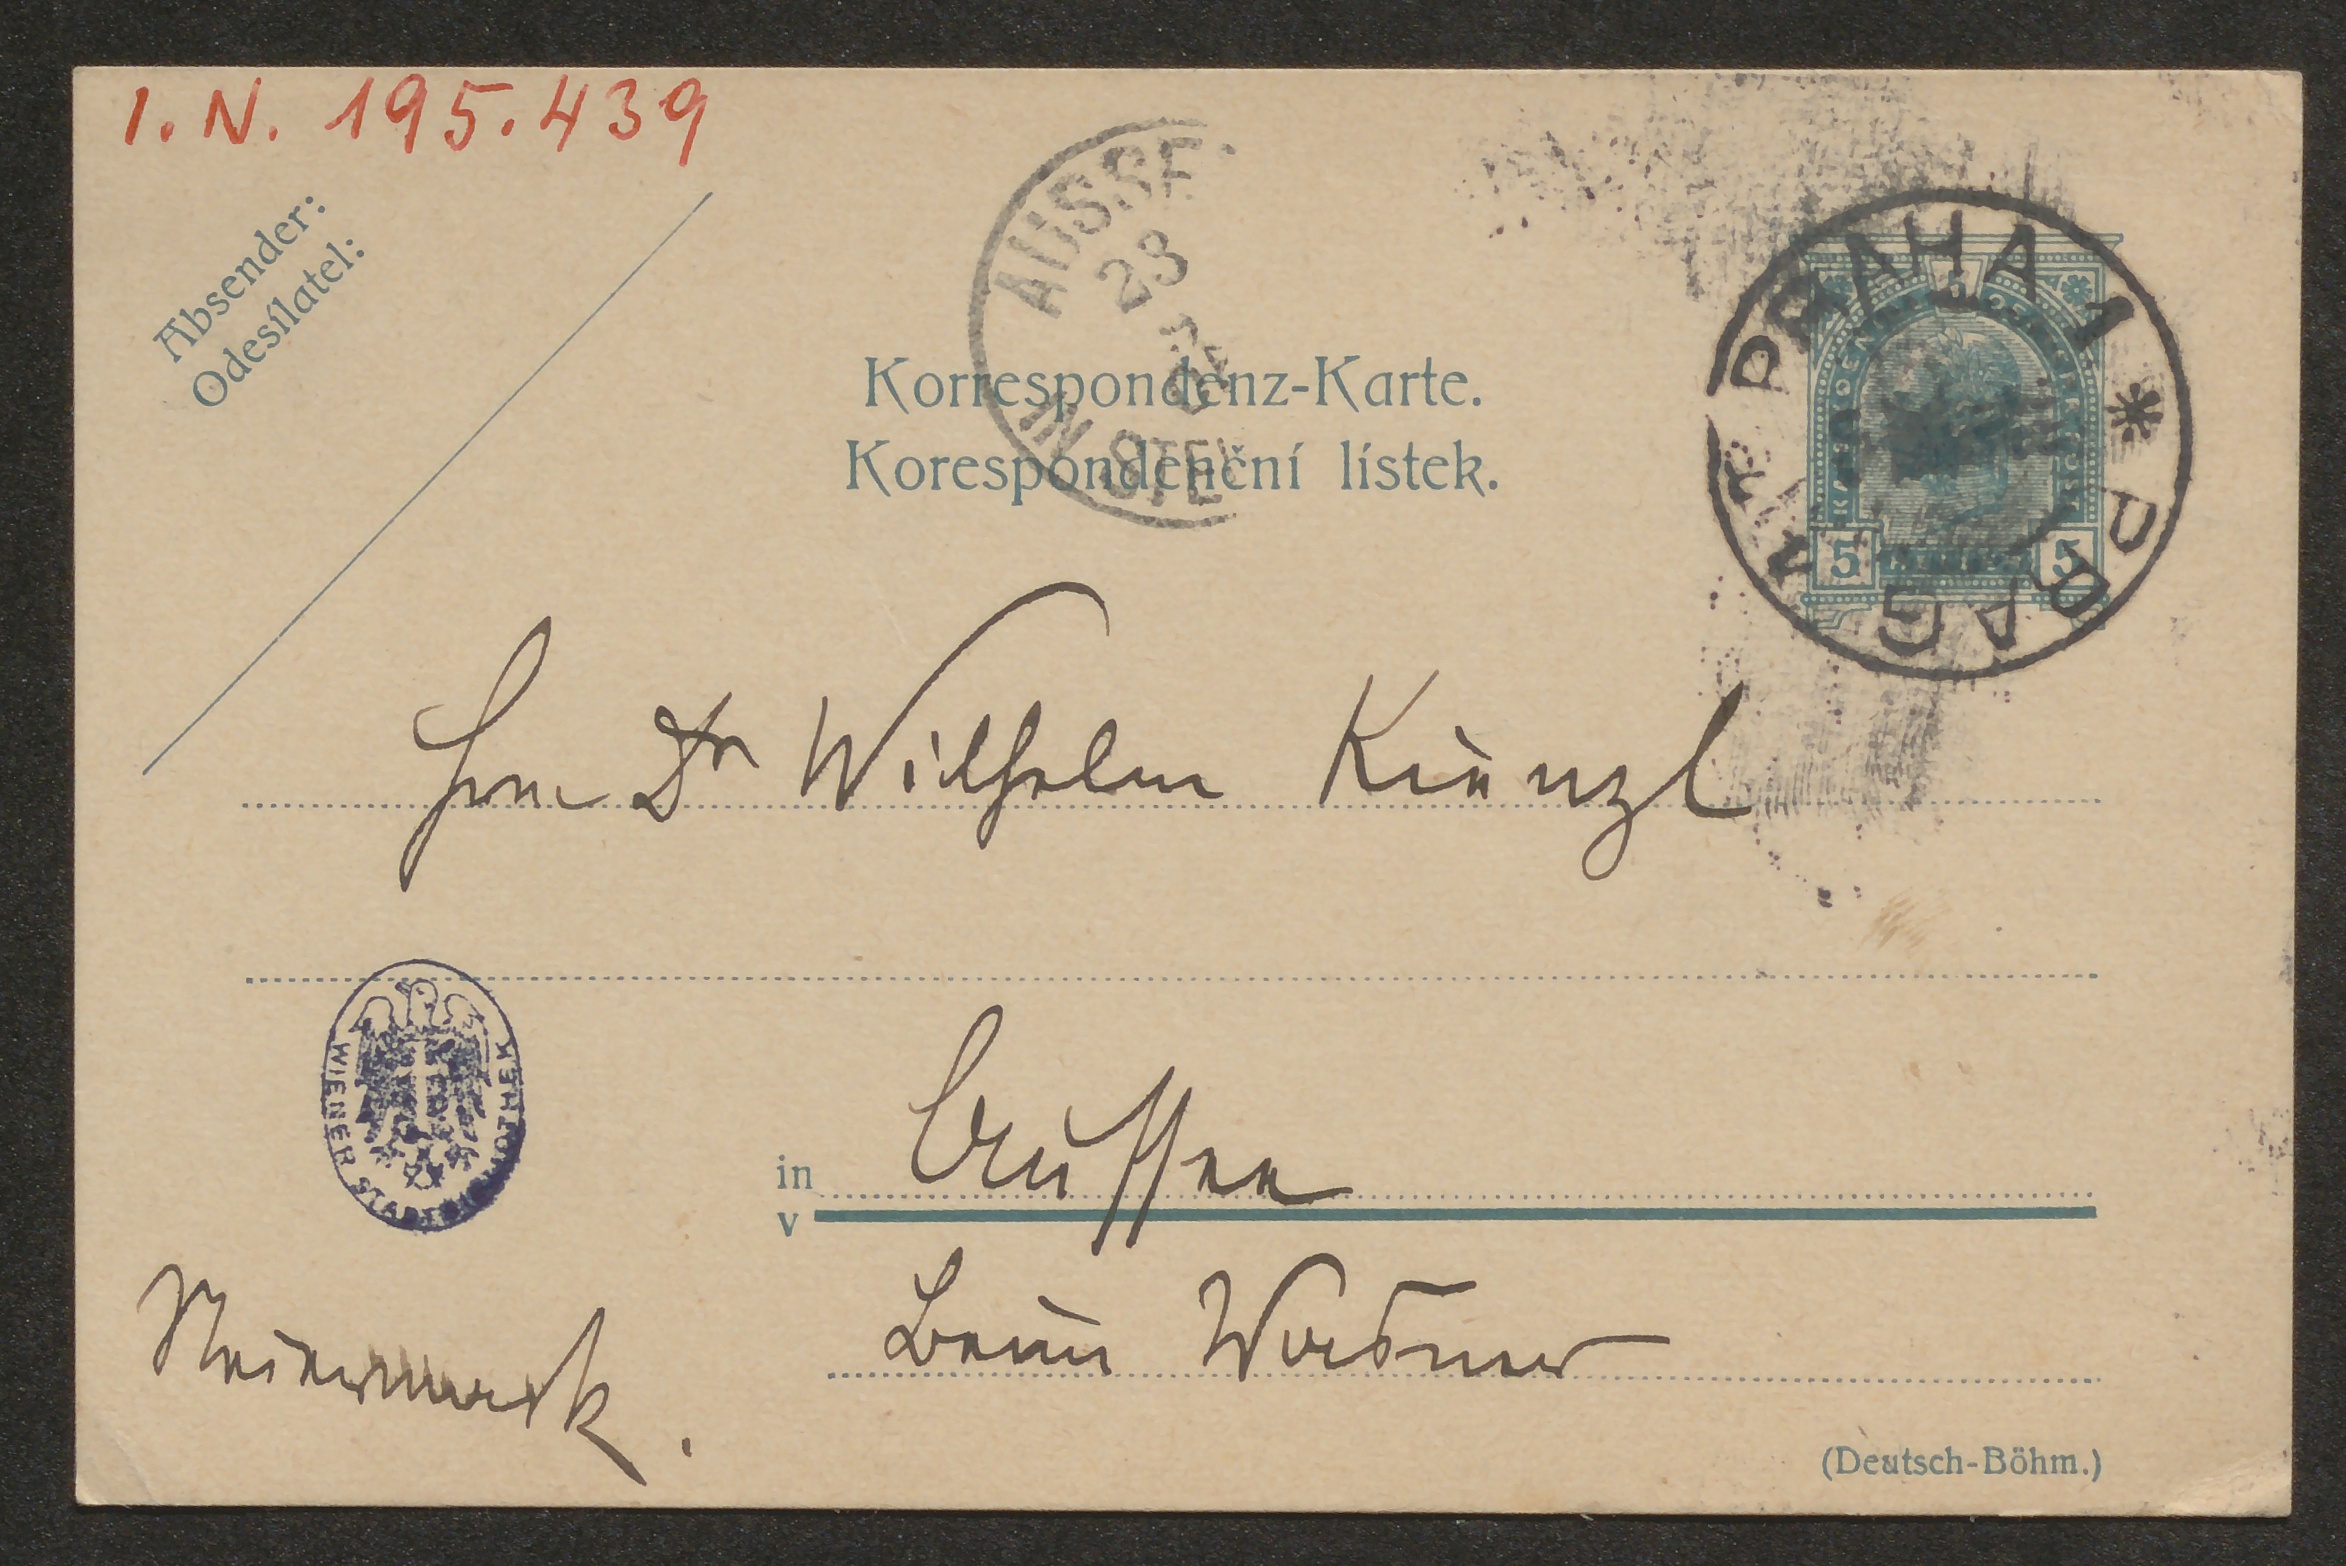 I. N. 195.439
Absender:
Odesílatel:
AUSSE
23
IN STEI
PRAHA 1 * PRAG 1 *
5 5
Korrespondenz-Karte.
Korespondenční lístek.
Herrn Dr Wilhelm Kienzl
WIENER STADTBIBLIOTHEK
in Aussee
v
Steiermark.
(Deutsch-Böhm.)